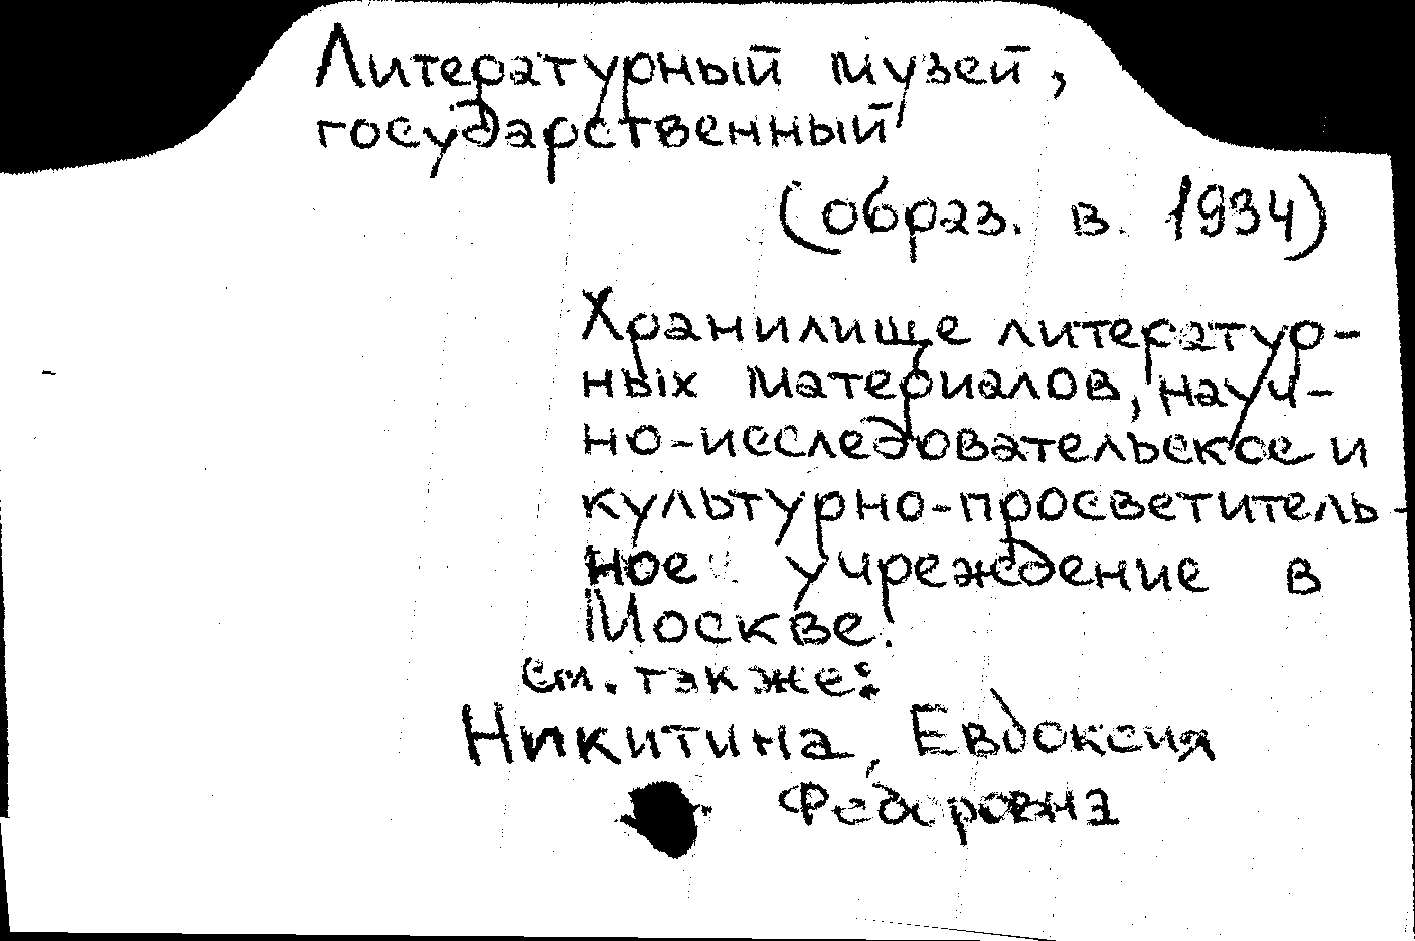 Литературный музей,
государственный
(образ. в. 1934)
Хранилище литератур-
ных материалов, науч-
но-исследовательское и
культурно-просветитель-
ное учреждение в
Москве.
см. также:
Никитина, Евдоксия
Федоровна